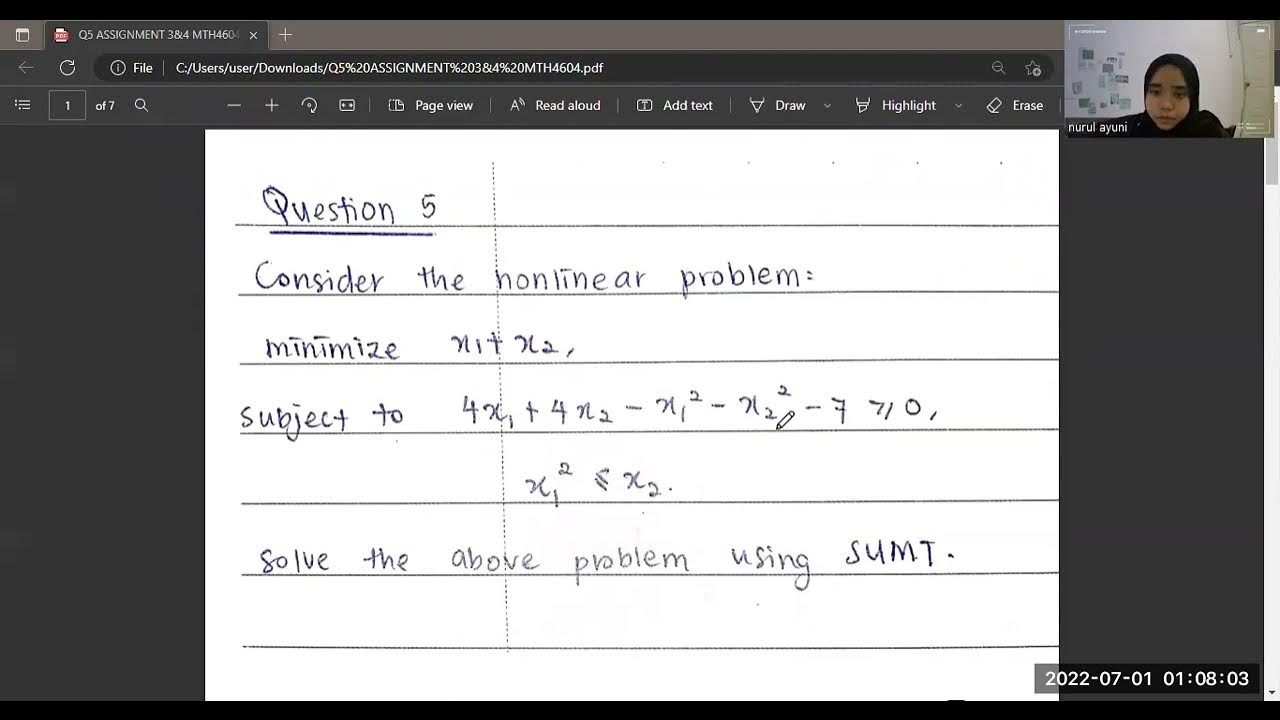 Q5 ASSIGNMENT 3&4 MTH4604
File
C:/Users/user/Downloads/Q5%20ASSIGNMENT%203&4%20MTH4604.pdf
1 of 7
Page view
Read aloud
Add text
Draw
Highlight
Erase
nurul ayuni
Question 5
Consider the nonlinear problem:
minimize x₁ + x₂,
subject to 4x₁ + 4x₂ - x₁² - x₂² - 7 ≥ 0,
x₁² ≤ x₂.
solve the above problem using SUMT.
2022-07-01 01:08:03